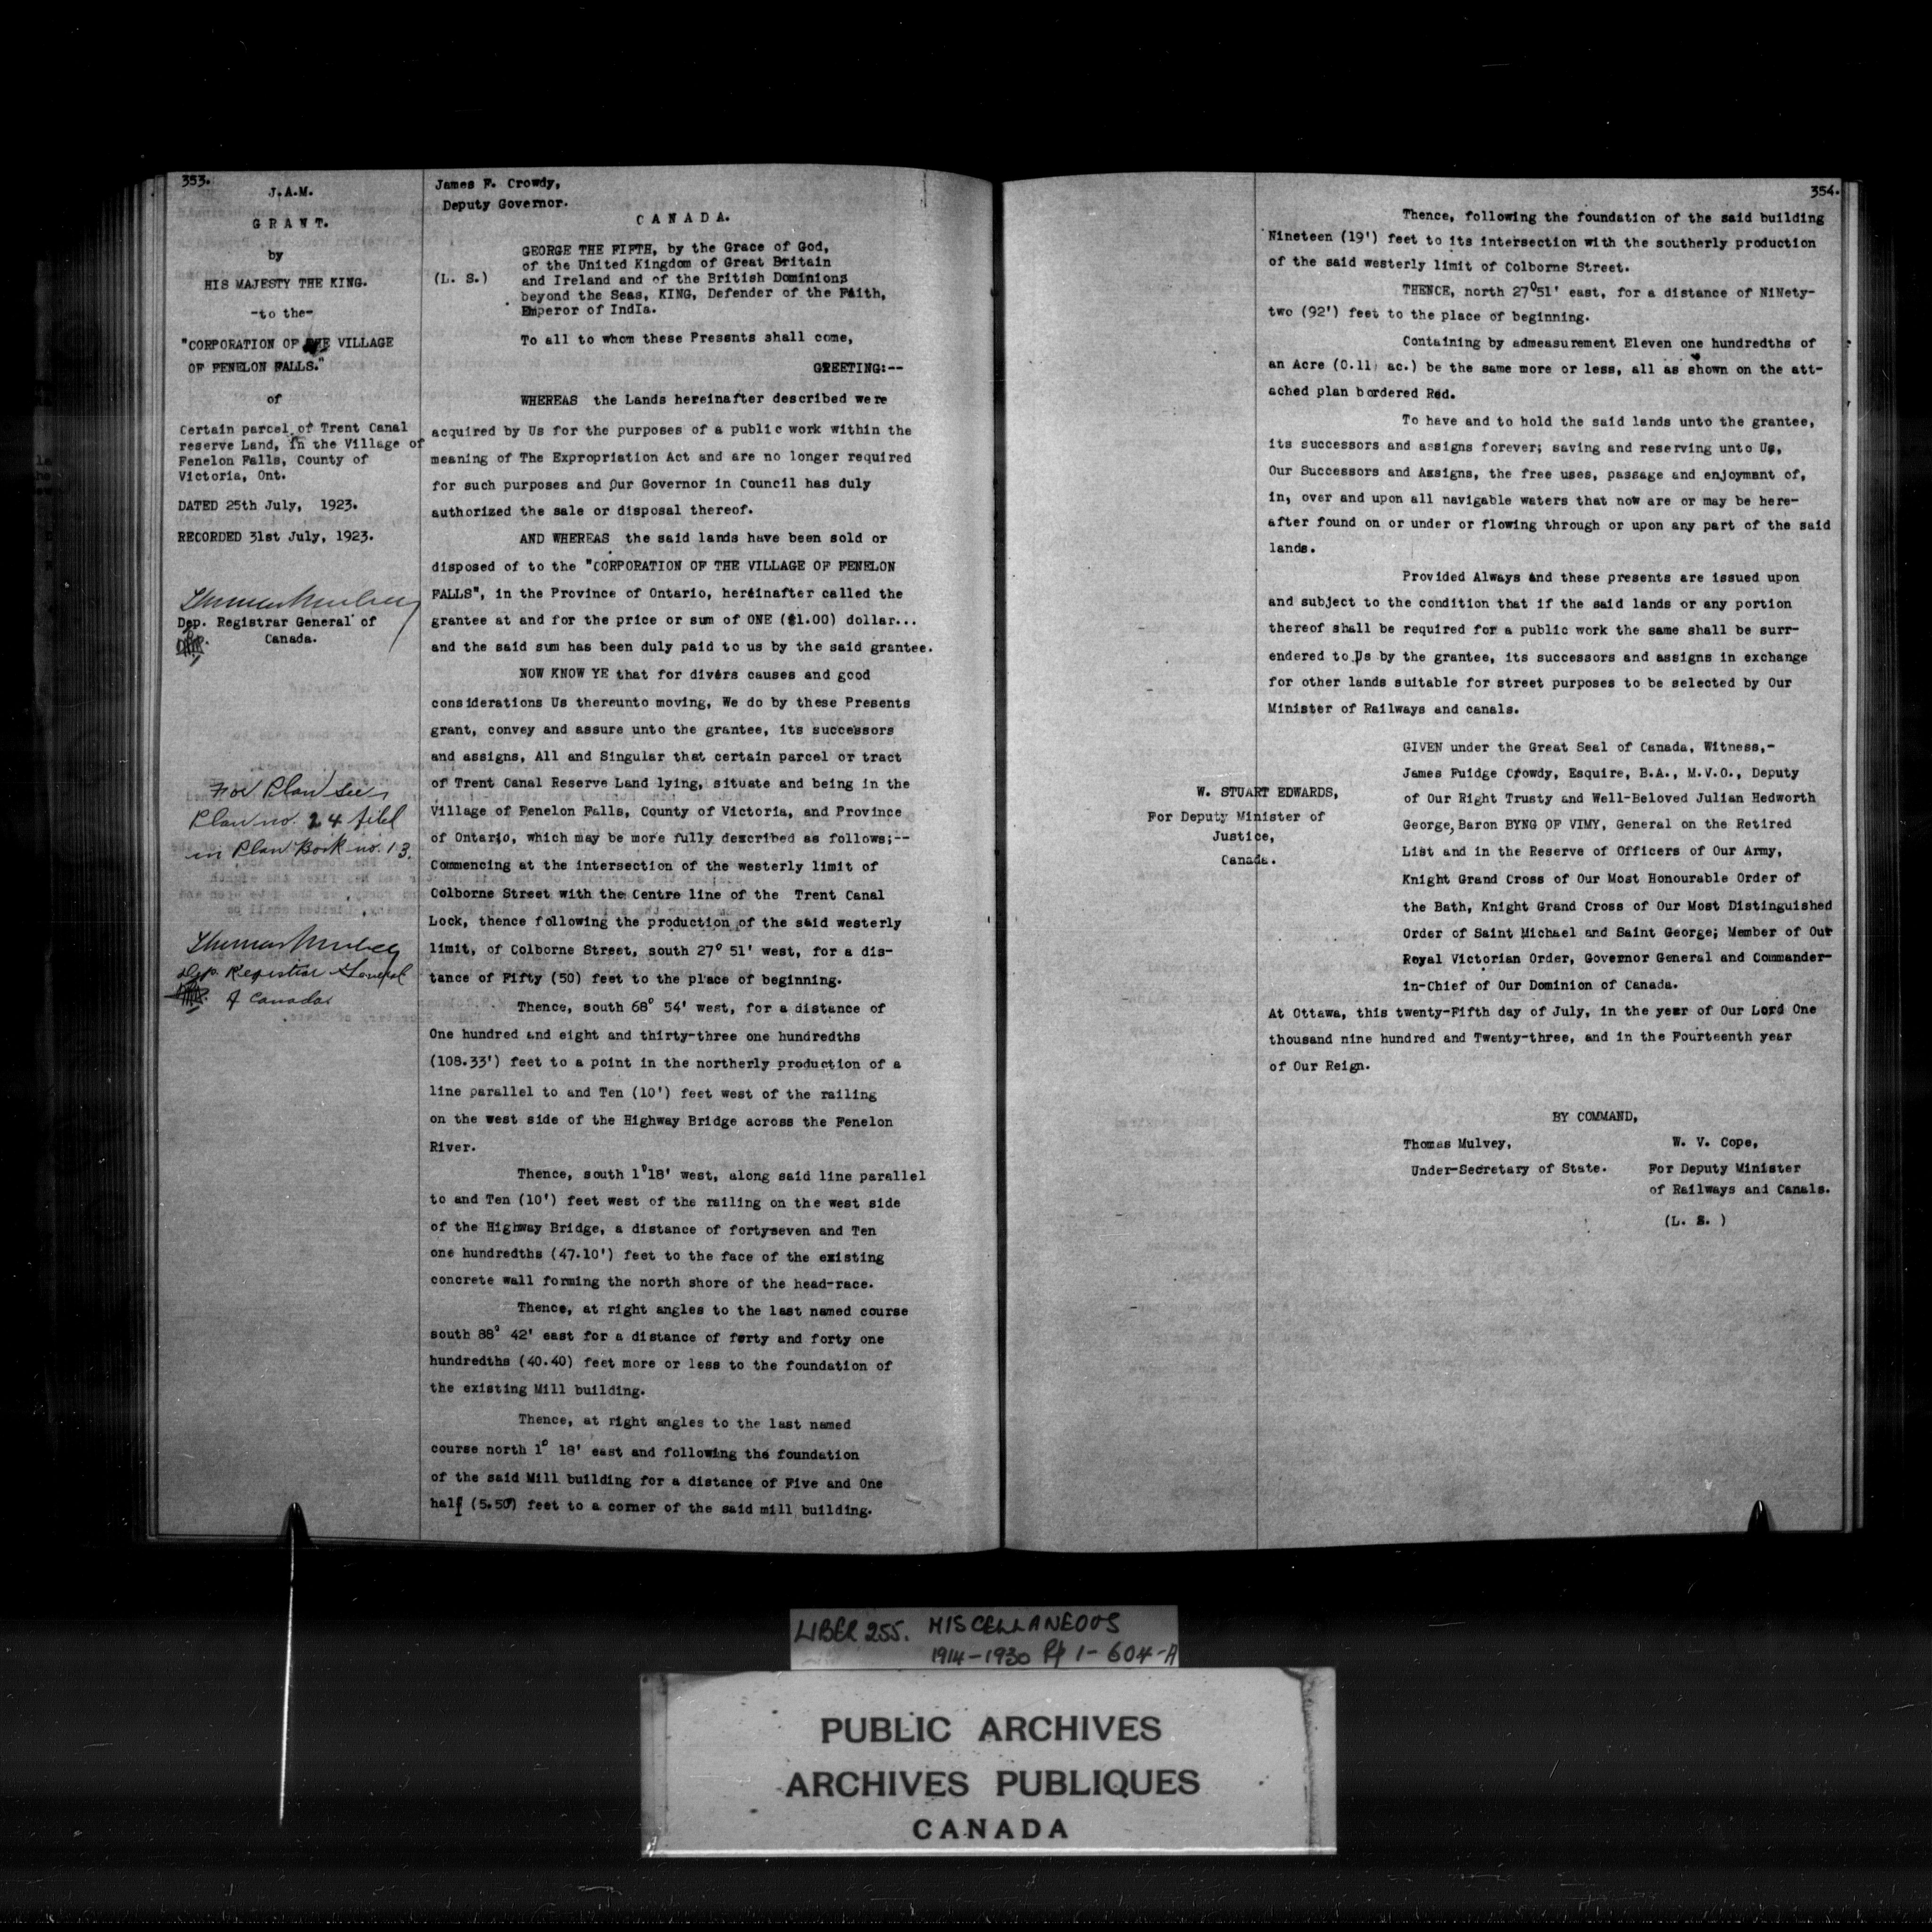 353.
J.A.M.
G R A N T.
by
HIS MAJESTY THE KING.
-to the-
"CORPORATION OF THE VILLAGE
OF FENELON FALLS."
of
Certain parcel of Trent Canal
reserve Land, in the Village of
Fenelon Falls, County of
Victoria, Ont.
DATED 25th July, 1923.
RECORDED 31st July, 1923.
Thomas Mulvey
Dep. Registrar General of
Canada.
For Plan see
Plan no. 24 filed
in Plan Book no. 13.
Thomas Mulvey
Dep. Registrar General
of Canada
James F. Crowdy,
Deputy Governor.
C A N A D A.
GEORGE THE FIFTH, by the Grace of God,
of the United Kingdom of Great Britain
(L. S.) and Ireland and of the British Dominions
beyond the Seas, KING, Defender of the Faith,
Emperor of IndIa.
To all to whom these Presents shall come,
GREETING:--
WHEREAS the Lands hereinafter described were
acquired by Us for the purposes of a public work within the
meaning of The Expropriation Act and are no longer required
for such purposes and Our Governor in Council has duly
authorized the sale or disposal thereof.
AND WHEREAS the said lands have been sold or
disposed of to the "CORPORATION OF THE VILLAGE OF FENELON
FALLS", in the Province of Ontario, hereinafter called the
grantee at and for the price or sum of ONE ($1.00) dollar...
and the said sum has been duly paid to us by the said grantee.
NOW KNOW YE that for divers causes and good
considerations Us thereunto moving, We do by these Presents
grant, convey and assure unto the grantee, its successors
and assigns, All and Singular that certain parcel or tract
of Trent Canal Reserve Land lying, situate and being in the
Village of Fenelon Falls, County of Victoria, and Province
of Ontario, which may be more fully described as follows;--
Commencing at the intersection of the westerly limit of
Colborne Street with the Centre line of the Trent Canal
Lock, thence following the production of the said westerly
limit, of Colborne Street, south 27° 51' west, for a dis-
tance of Fifty (50) feet to the place of beginning.
Thence, south 68° 54' west, for a distance of
One hundred and eight and thirty-three one hundredths
(108.33') feet to a point in the northerly production of a
line parallel to and Ten (10') feet west of the railing
on the west side of the Highway Bridge across the Fenelon
River.
Thence, south 1°18' west, along said line parallel
to and Ten (10') feet west of the railing on the west side
of the Highway Bridge, a distance of fortyseven and Ten
one hundredths (47.10') feet to the face of the existing
concrete wall forming the north shore of the head-race.
Thence, at right angles to the last named course
south 88° 42' east for a distance of forty and forty one
hundredths (40.40) feet more or less to the foundation of
the existing Mill building.
Thence, at right angles to the last named
course north 1° 18' east and following the foundation
of the said Mill building for a distance of Five and One
half (5.50') feet to a corner of the said mill building.
354.
Thence, following the foundation of the said building
Nineteen (19') feet to its intersection with the southerly production
of the said westerly limit of Colborne Street.
THENCE, north 27°51' east, for a distance of NiNety-
two (92') feet to the place of beginning.
Containing by admeasurement Eleven one hundredths of
an Acre (0.11 ac.) be the same more or less, all as shown on the att-
ached plan bordered Red.
To have and to hold the said lands unto the grantee,
its successors and assigns forever; saving and reserving unto Us,
Our Successors and Assigns, the free uses, passage and enjoyment of,
in, over and upon all navigable waters that now are or may be here-
after found on or under or flowing through or upon any part of the said
lands.
Provided Always and these presents are issued upon
and subject to the condition that if the said lands or any portion
thereof shall be required for a public work the same shall be surr-
endered to Us by the grantee, its successors and assigns in exchange
for other lands suitable for street purposes to be selected by Our
Minister of Railways and canals.
W. STUART EDWARDS,
For Deputy Minister of
Justice,
Canada.
GIVEN under the Great Seal of Canada, Witness,-
James Fuidge Crowdy, Esquire, B.A., M.V.O., Deputy
of Our Right Trusty and Well-Beloved Julian Hedworth
George, Baron BYNG OF VIMY, General on the Retired
List and in the Reserve of Officers of Our Army,
Knight Grand Cross of Our Most Honourable Order of
the Bath, Knight Grand Cross of Our Most Distinguished
Order of Saint Michael and Saint George; Member of Our
Royal Victorian Order, Governor General and Commander-
in-Chief of Our Dominion of Canada.
At Ottawa, this twenty-Fifth day of July, in the year of Our Lord One
thousand nine hundred and Twenty-three, and in the Fourteenth year
of Our Reign.
BY COMMAND,
Thomas Mulvey,
Under-Secretary of State.
W. V. Cope,
For Deputy Minister
of Railways and Canals.
(L. S. )
LIBER 255. MISCELLANEOUS
1914-1930 Pp 1-604-A
PUBLIC ARCHIVES
ARCHIVES PUBLIQUES
CANADA